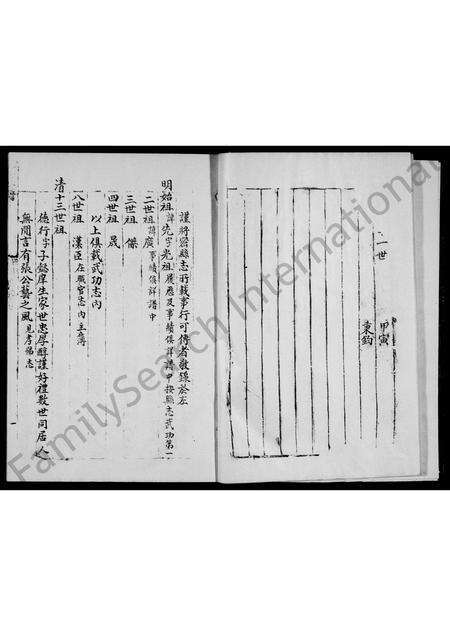 二世
甲寅
東鈞
謹將密縣志所載事行可傳者敬錄於左
明始祖諱先字光祖履歷及事績俱詳譜中按縣志武功第一
二世祖廣事績俱詳譜中
三世祖傑
四世祖晟
以上俱載武功志內
八世祖漢臣在職官志內主簿
清十三世祖
德行字子懿庠生家世忠厚醇謹好禮數世同居人
無閒言有張公藝之風見孝弟志
FamilySearch International